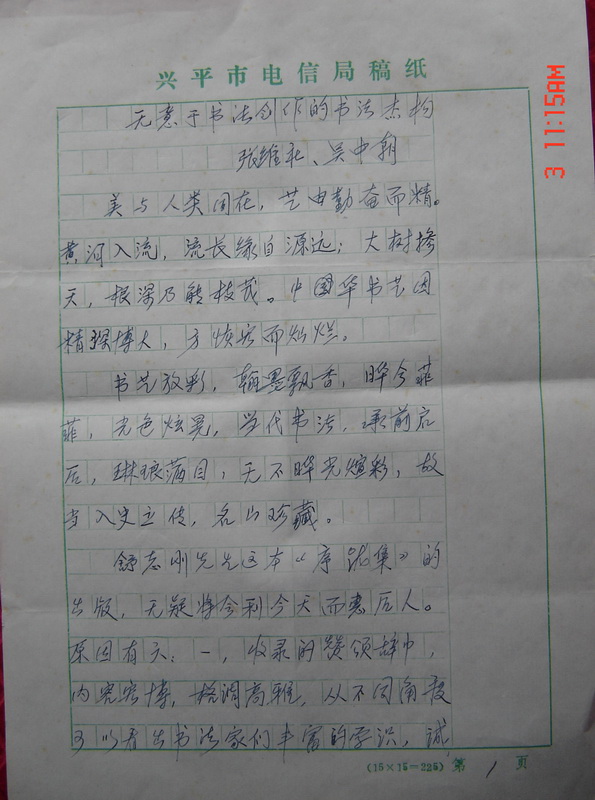 兴平市电信局稿纸
无意于书法创作的书法杰构
张维社、吴中朝
美与人类同在，艺由勤奋而精。
黄河入流，流长缘自源远；大树掺
天，根深乃能枝茂。中国华书艺因
精深博大，方恢宏而灿烂。
书艺放彩，翰墨飘香，晔今菲
菲，光色炫晃，当代书法，承前启
后，琳琅满目，无不晔光煊彩，故
当入史立传，名山珍藏。
舒志刚先生这本《序跋集》的
出版，无疑将会利今天而惠后人。
原因有六：一，收录的赞颂辞中，
内容宏博，格调高雅，从不同角度
可以看出书法家们丰富的学识，诚
(15×15=225) 第 1 页
3 11:15AM